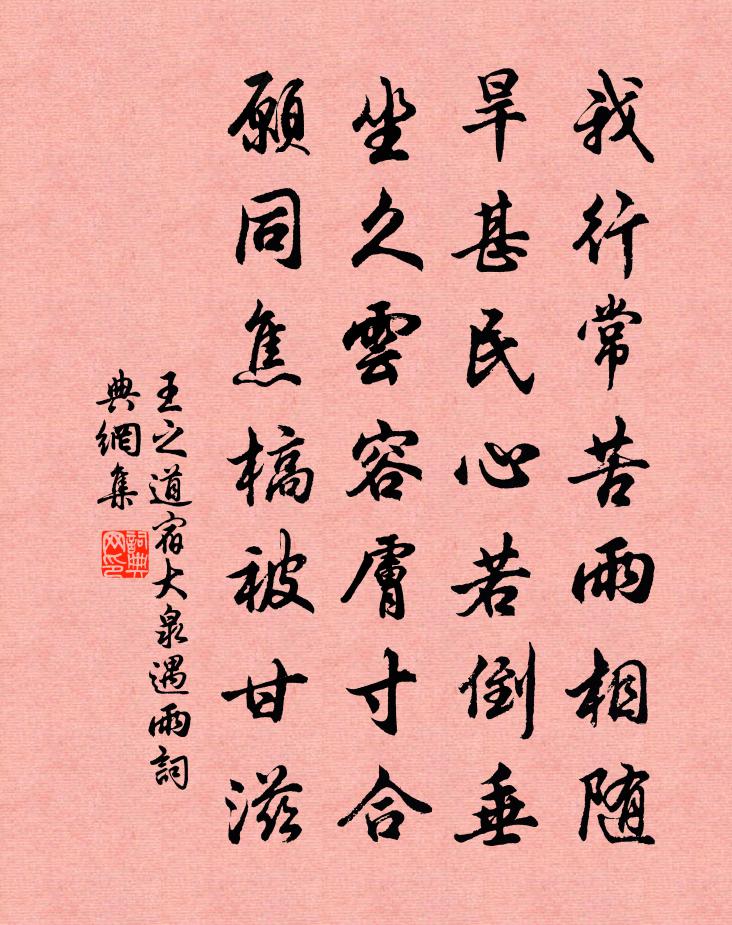 我行常苦雨相随
旱甚民心若倒垂
坐久雲容膚寸合
願同焦槁被甘滋
王之道宿大泉遇雨詞
典網集
詞典
网印